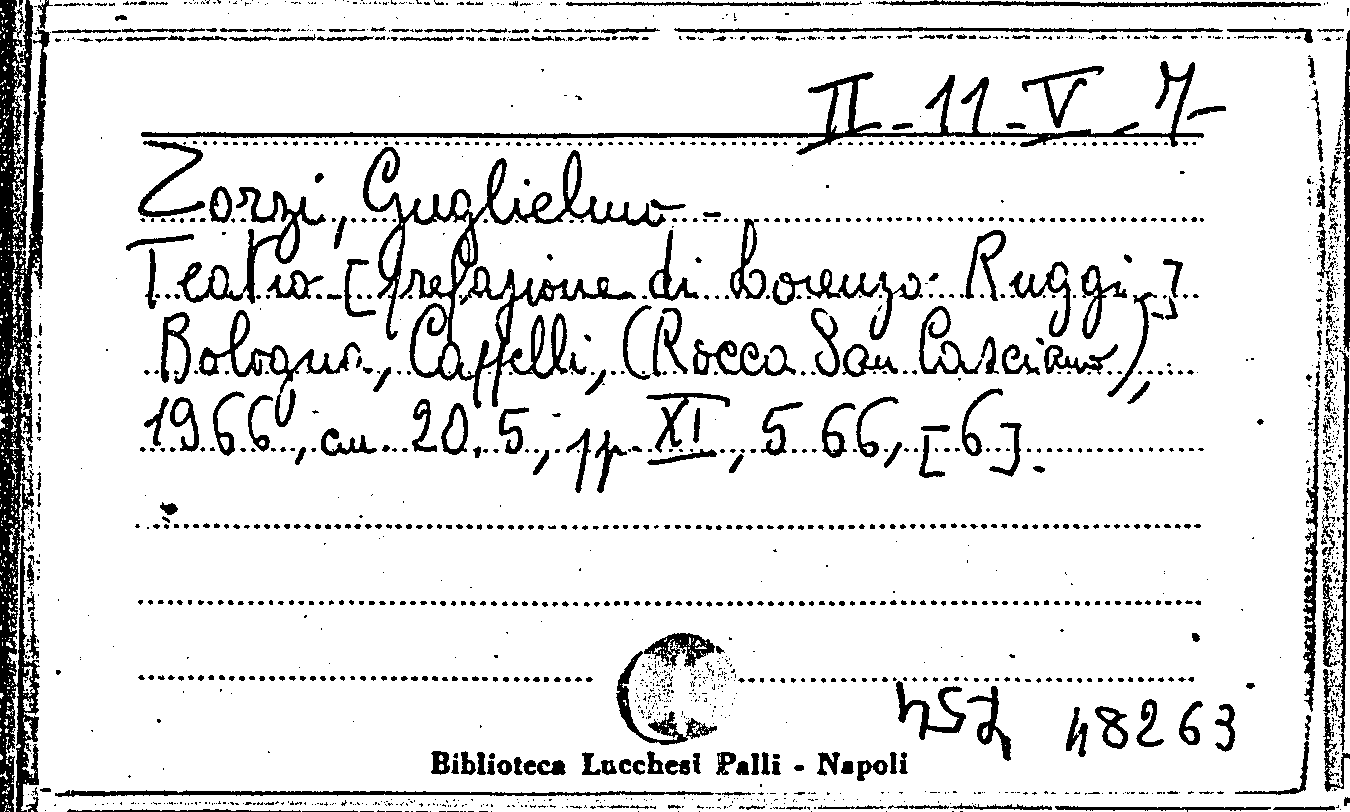 II-11-V-7-
Zorzi, Guglielmo -
Teatro [prefazione di Lorenzo Ruggi]
Bologna, Cappelli, (Rocca San Casciano),
1966, cm. 20.5, pp. XI, 566, [6].
48263
Biblioteca Lucchesi Palli - Napoli